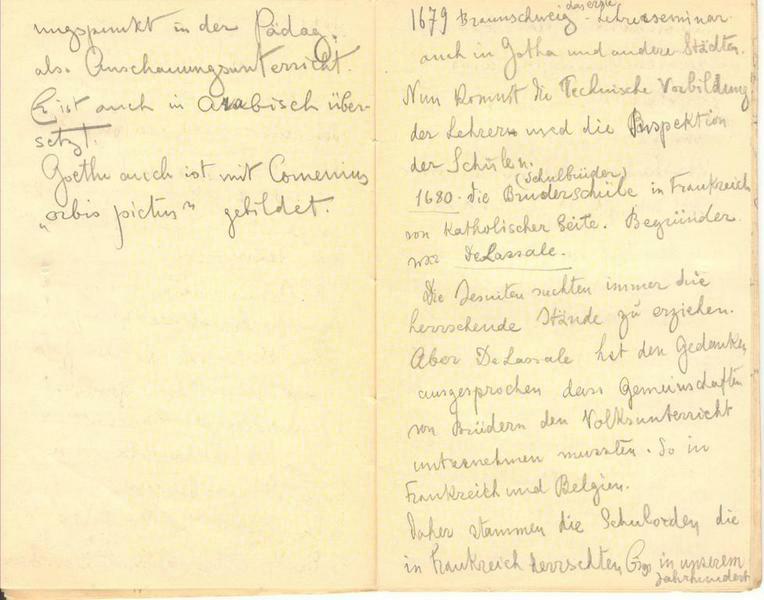 ungspunkt in der Pädag.
als Anschauungsunterricht.
Er ist auch in Arabisch über-
setzt.
Goethe auch ist mit Comenius
„orbis pictus" gebildet.
das erste
1679 Braunschweig - Lehrerseminar
auch in Gotha und andere Städten.
Nun kommt die Technische Vorbildung
der Lehrern und die Inspektion
der Schulen.
(Schulbrüder)
1680. die Brüderschule in Frankreich
von Katholischer Seite. Begründer
war DeLassale.
Die Jesuiten suchten immer die
herrschende Stände zu erziehen.
Aber DeLassale hat den Gedanken
ausgesprochen dass Gemeinschaften
von Brüdern den Volksunterricht
unternehmen mussten. So in
Frankreich und Belgien.
Daher stammen die Schulorden die
in Frankreich herrschten bis in unserem
Jahrhundert